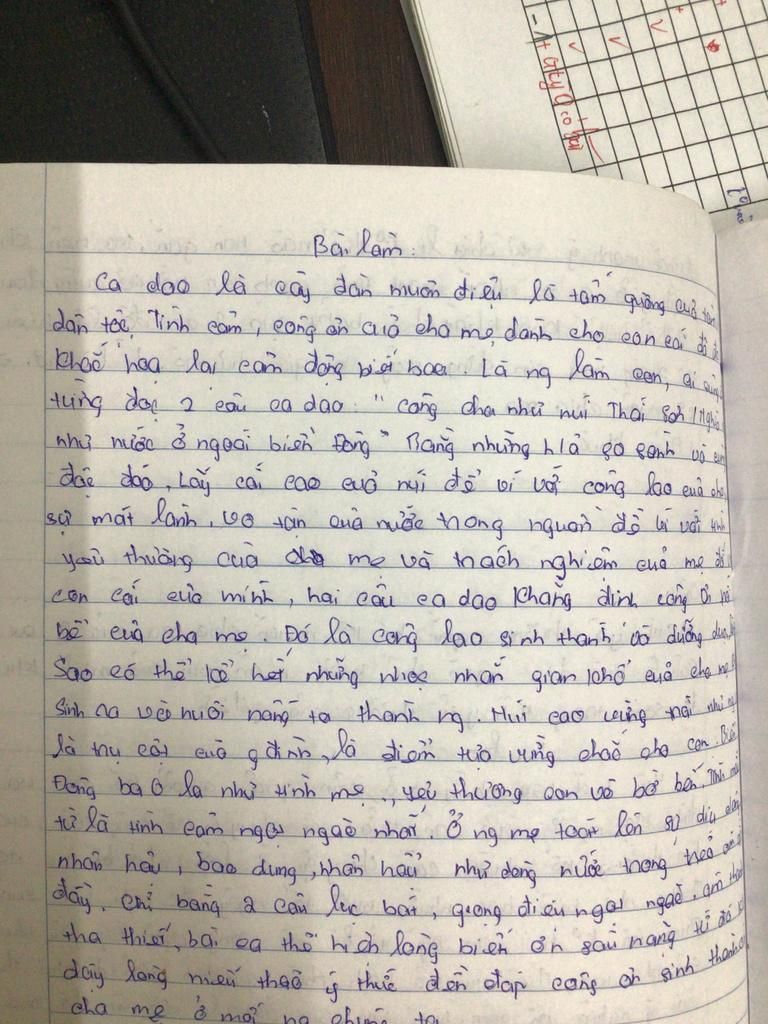 - 1 + Gtký Q có hai
Bài làm:
Ca dao là cây đàn muôn điệu là tấm gương của tâm
dân tộc. Tình cảm, công ơn của cha mẹ dành cho con cái đã đc
khắc hoạ lại cảm động biết bao. Là ng làm con, ai cũng
từng đọc 2 câu ca dao: "Công cha như núi Thái Sơn / Nghĩa
như nước ở ngoài biển Đông" Bằng những h/ả so sánh vô cùng
độc đáo, Lấy cái cao của núi để ví với công lao của cha
sự mát lành, vô tận của nước trong nguồn để ví với tình
yêu thương của mẹ và trách nghiệm của mẹ đối
con cái của mình, hai câu ca dao khẳng định công ơn
bể của cha mẹ. Đó là công lao sinh thành và dưỡng dục,
Sao có thể kể hết những nhọc nhằn gian khổ của cha mẹ
Sinh ra và nuôi nấng ta thành ng. Núi cao vững trãi như
là trụ cột của g đình, là điểm tựa vững chắc cho con. Biển
Đông bao la như tình mẹ, yêu thương con vô bờ bến. Tình mẫu
tử là tình cảm ngọt ngào nhất. Ở ng mẹ toát lên sự dịu dàng
nhân hậu, bao dung, nhân hậu như dòng nước trong
đầy. Chỉ bằng 2 câu lục bát, giọng điệu ngọt ngào, âm
tha thiết, bài ca thể hiện lòng biết ơn sâu nặng từ đó
dấy lòng hiếu thảo ý thức đền đáp công ơn sinh thành
cha mẹ ở mỗi ng chúng ta